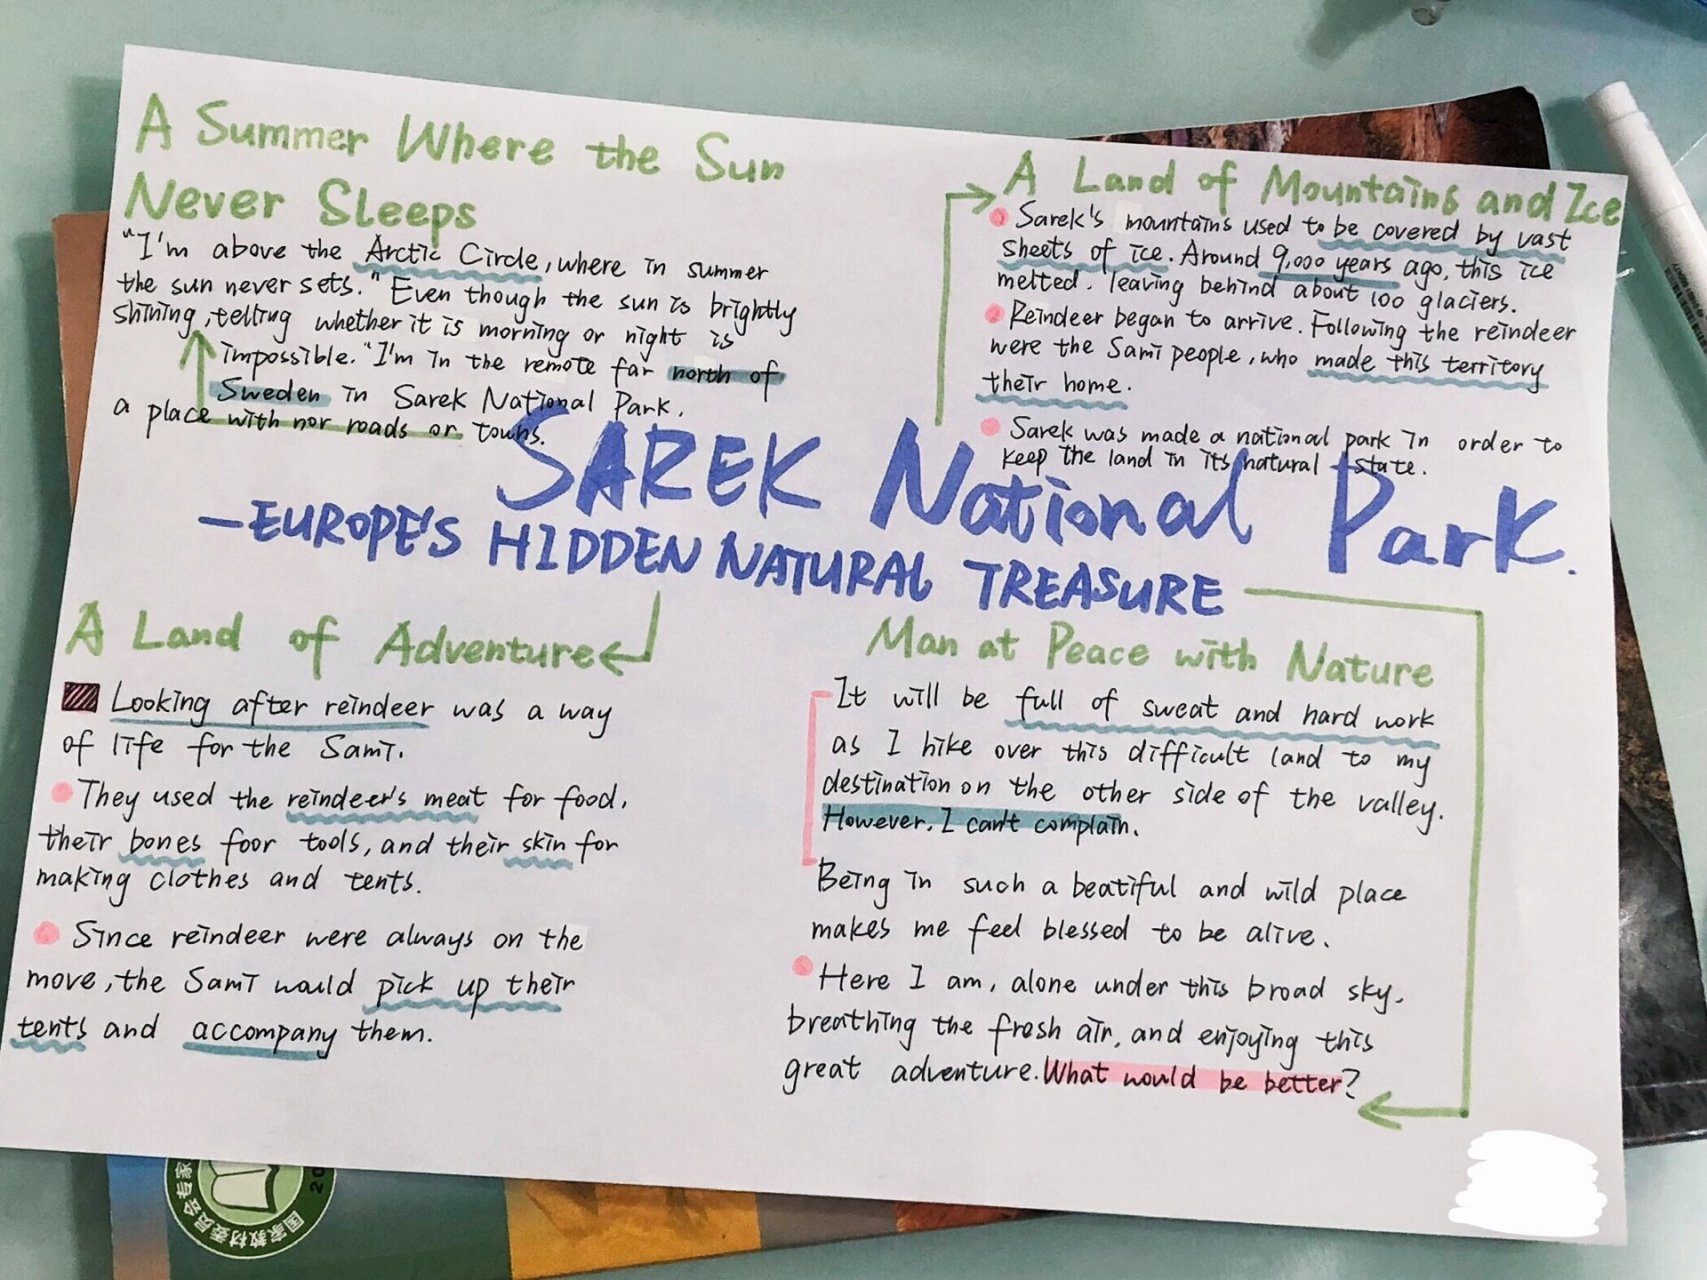 A Summer Where the Sun
Never Sleeps
"I'm above the Arctic Circle, where in summer
the sun never sets." Even though the sun is brightly
shining, telling whether it is morning or night is
impossible. "I'm in the remote far north of
Sweden in Sarek National Park,
a place with nor roads or towns.
A Land of Mountains and Ice
Sarek's mountains used to be covered by vast
sheets of ice. Around 9,000 years ago, this ice
melted. leaving behind about 100 glaciers.
Reindeer began to arrive. Following the reindeer
were the Sami people, who made this territory
their home.
Sarek was made a national park in order to
keep the land in its natural state.
SAREK National Park.
—EUROPE'S HIDDEN NATURAL TREASURE
A Land of Adventure
Looking after reindeer was a way
of life for the Sami.
They used the reindeer's meat for food,
their bones foor tools, and their skin for
making clothes and tents.
Since reindeer were always on the
move, the Sami would pick up their
tents and accompany them.
Man at Peace with Nature
It will be full of sweat and hard work
as I hike over this difficult land to my
destination on the other side of the valley.
However, I can't complain.
Being in such a beatiful and wild place
makes me feel blessed to be alive.
Here I am, alone under this broad sky,
breathing the fresh air, and enjoying this
great adventure. What would be better?
国家教材委员会专家
20